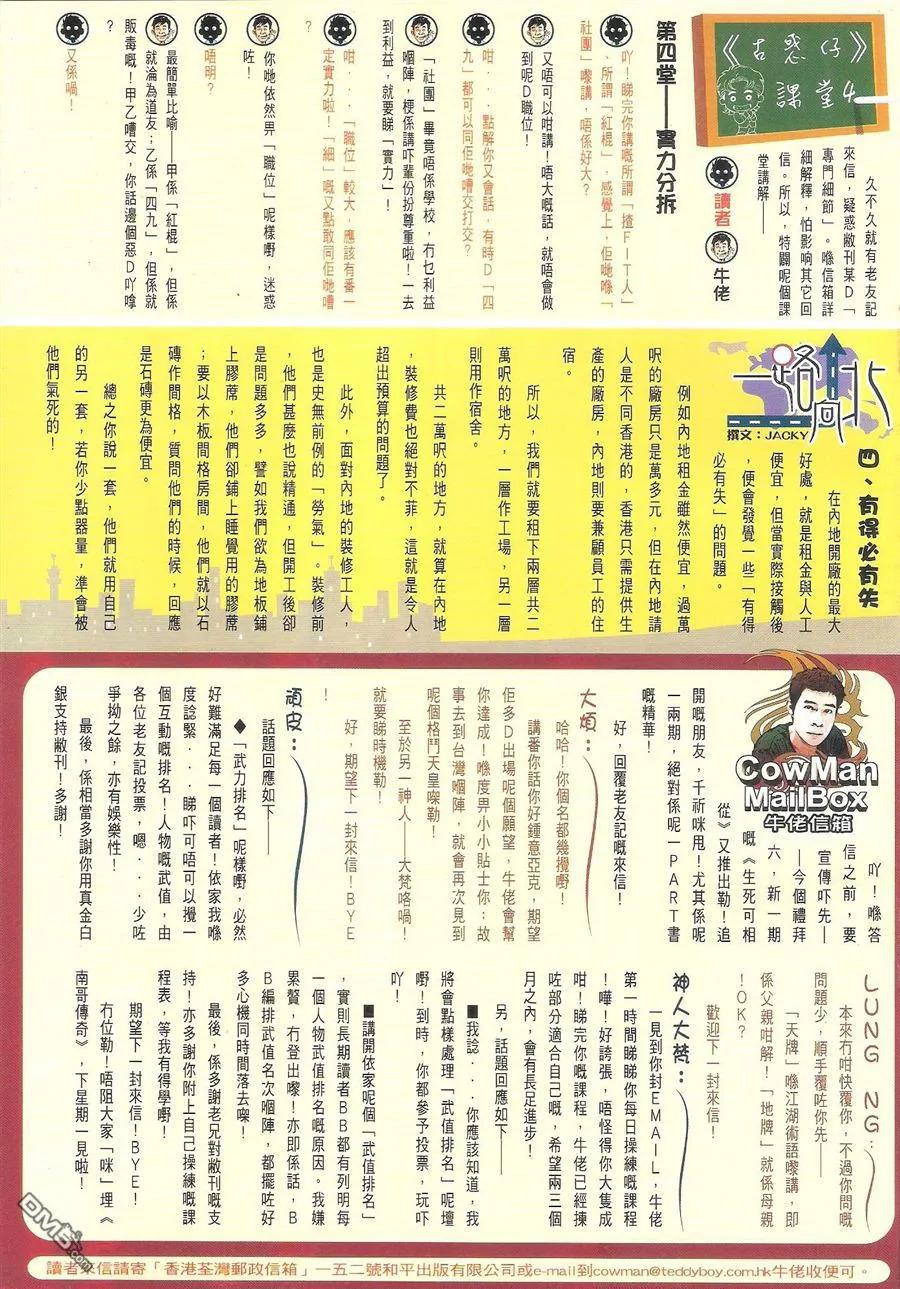 《古惑仔》
課堂4
讀者
牛佬
久不久就有老友記
來信，疑惑敝刊某D「
專門細節」。喺信箱詳
細解釋，怕影响其它回
信。所以，特闢呢個課
堂講解——
第四堂——實力分拆
吖！睇完你講嘅所謂「揸FIT人」
、所謂「紅棍」，感覺上，佢哋喺「
社團」嚟講，唔係好大？
又唔可以咁講！唔大嘅話，就唔會做
到呢D職位！
咁．．．點解你又會話，有時D「四
九」都可以同佢哋嘈交打交？
「社團」畢竟唔係學校，冇乜利益
嗰陣，梗係講吓輩份扮尊重啦！一去
到利益，就要睇「實力」！
咁．．．「職位」較大，應該有番一
定實力啦！「細」嘅又點敢同佢哋嘈
？
你哋依然畀「職位」呢樣嘢，迷惑
咗！
唔明？
最簡單比喻——甲係「紅棍」，但係
就淪為道友；乙係「四九」，但係就
販毒嘅！甲乙嘈交，你話邊個惡D吖嗱
？
又係喎！
一路向北
撰文：JACKY
四、有得必有失
在內地開廠的最大
好處，就是租金與人工
便宜，但當實際接觸後
，便會發覺一些「有得
必有失」的問題。
例如內地租金雖然便宜，過萬
呎的廠房只是萬多元，但在內地請
人是不同香港的，香港只需提供生
產的廠房，內地則要兼顧員工的住
宿。
所以，我們就要租下兩層共二
萬呎的地方，一層作工場，另一層
則用作宿舍。
共二萬呎的地方，就算在內地
，裝修費也絕對不菲，這就是令人
超出預算的問題了。
此外，面對內地的裝修工人，
也是史無前例的「勞氣」。裝修前
，他們甚麼也說精通，但開工後卻
是問題多多，譬如我們欲為地板鋪
上膠蓆，他們卻鋪上睡覺用的膠蓆
；要以木板間格房間，他們就以石
磚作間格，質問他們的時候，回應
是石磚更為便宜。
總之你說一套，他們就用自己
的另一套，若你少點器量，準會被
他們氣死的！
CowMan
MailBox
牛佬信箱
吖！喺答
信之前，要
宣傳吓先—
—今個禮拜
六，新一期
嘅《生死可相
從》又推出勒！追
開嘅朋友，千祈咪甩！尤其係呢
一兩期，絕對係呢一PART書
嘅精華！
好，回覆老友記嘅來信！
大煩：
哈哈！你個名都幾攪嘢！
講番你話你好鍾意亞克，期望
佢多D出場呢個願望，牛佬會幫
你達成！喺度畀小小貼士你：故
事去到台灣嗰陣，就會再次見到
呢個格鬥天皇㗎勒！
至於另一神人——大梵咯喎！
就要睇時機勒！
好，期望下一封來信！BYE
！
頑皮：
話題回應如下——
◆「武力排名」呢樣嘢，必然
好難滿足每一個讀者！依家我喺
度諗緊．．．睇吓可唔可以攪一
個互動嘅排名！人物嘅武值，由
各位老友記投票，嗯．．．少咗
爭拗之餘，亦有娛樂性！
最後，係相當多謝你用真金白
銀支持敝刊！多謝！
LUNG NG：
本來冇咁快覆你，不過你問嘅
問題少，順手覆咗你先——
「天牌」喺江湖術語嚟講，即
係父親咁解！「地牌」就係母親
！OK？
歡迎下一封來信！
神人大梵：
一見到你封EMAIL，牛佬
第一時間睇睇你每日操練嘅課程
！嘩！好誇張，唔怪得你大隻成
咁！睇完你嘅課程，牛佬已經揀
咗部分適合自己嘅，希望兩三個
月之內，會有長足進步！
另，話題回應如下——
■我諗．．．你應該知道，我
將會點樣處理「武值排名」呢壇
嘢！到時，你都參予投票，玩吓
吖！
■講開依家呢個「武值排名」
，實則長期讀者BB都有列明每
一個人物武值排名嘅原因。我嫌
累贅，冇登出嚟！亦即係話，B
B編排武值名次嗰陣，都擺咗好
多心機同時間落去㗎！
最後，係多謝老兄對敝刊嘅支
持！亦多謝你附上自己操練嘅課
程表，等我有得學嘢！
期望下一封來信！BYE！
冇位勒！唔阻大家「咪」埋《
南哥傳奇》，下星期一見啦！
讀者來信請寄「香港荃灣郵政信箱」一五二號和平出版有限公司或e-mail到cowman@teddyboy.com.hk牛佬收便可。